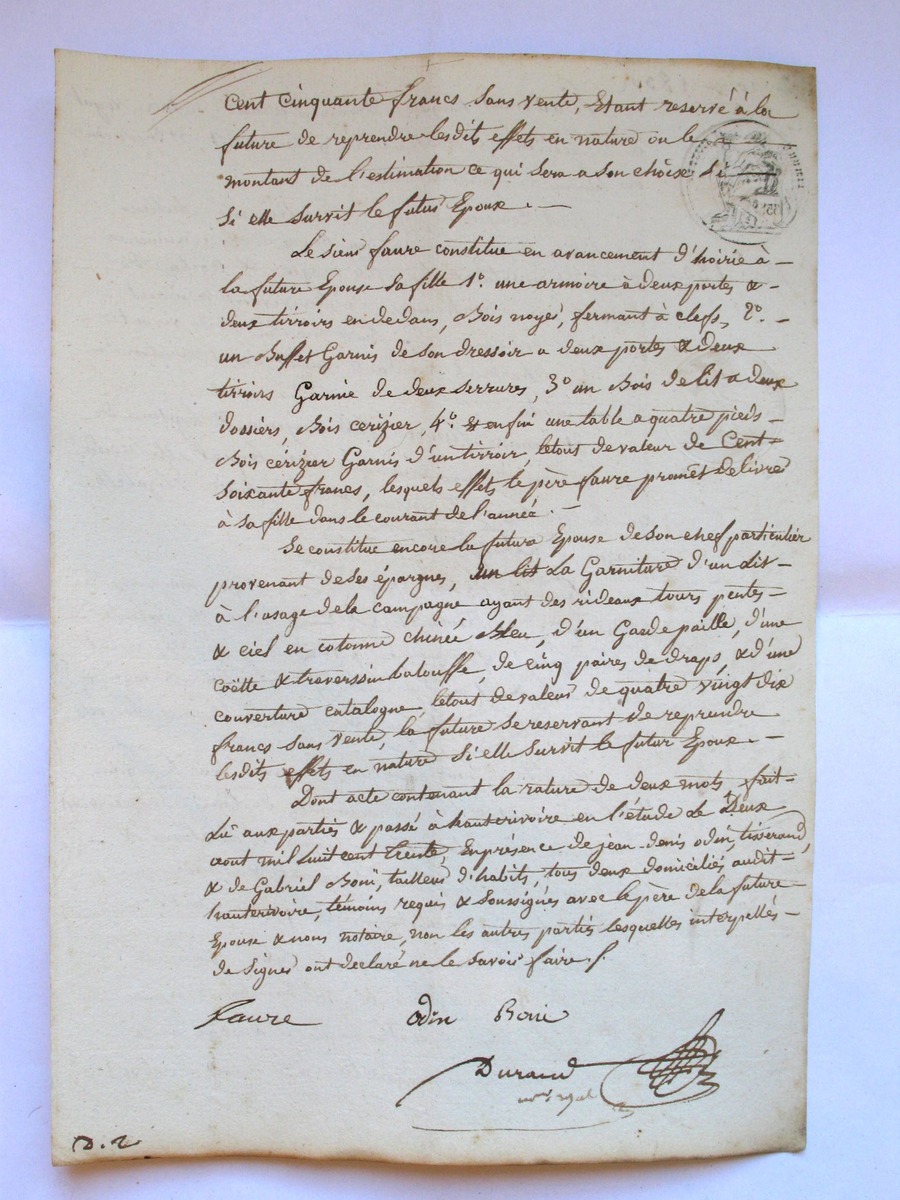 cent cinquante francs sans vente, Etant reservé à la
future de reprendre lesdits effets en nature ou le
montant de l'estimation ce qui sera a son choix Si
Si elle survit le futur Epoux. —
Le sieur faure constitue en avancement d'hoirie à —
la future Epouse Sa fille 1.° une armoire à deux portes & —
deux tirroirs en dedans, Bois noyer, fermant à clefs, 2.° —
un Buffet Garnis de son dressoir a deux portes & deux
tirroirs Garnie de deux serrures, 3° un Bois de lit a deux
dossiers, Bois cerizier, 4.° & enfin une table a quatre pieds —
Bois cérizier Garnis d'un tirroir, letout de valeur de Cent =
Soixante francs, lesquels effets le père faure promêt de livrer
à sa fille dans le courant de l'année. —
Se constitue encore la future Epouse de son chef particulier
provenant de ses épargnes, un lit La Garniture d'un lit —
à l'usage de la campagne ayant des rideaux tours pentes —
& ciel en cotonne chinée Bleu, d'un Garde paille, d'une
coëtte & traverssin balouffe, de cinq paires de draps, & d'une
couverture catalogne, letout de valeur de quatre vingt dix
francs sans vente, la future se reservant de reprendre
lesdits effets en nature Si elle survit le futur Epoux. —
Dont acte contenant la rature de deux mots, fait —
Lu aux parties & passé à hauterivoire en l'étude Le Deux
aout mil huit cent trente, En présence de jean-denis odin, tisserand,
& de Gabriel Boni, tailleur d'habits, tous deux domiciliés audit =
hauterivoire, témoins requis & Soussignés avec le père de la future
Epouse & nous notaire, non les autres parties lesquelles interpellés —
de signer ont declaré ne le savoir faire /.
faure odin Boni
Durand
D. 2